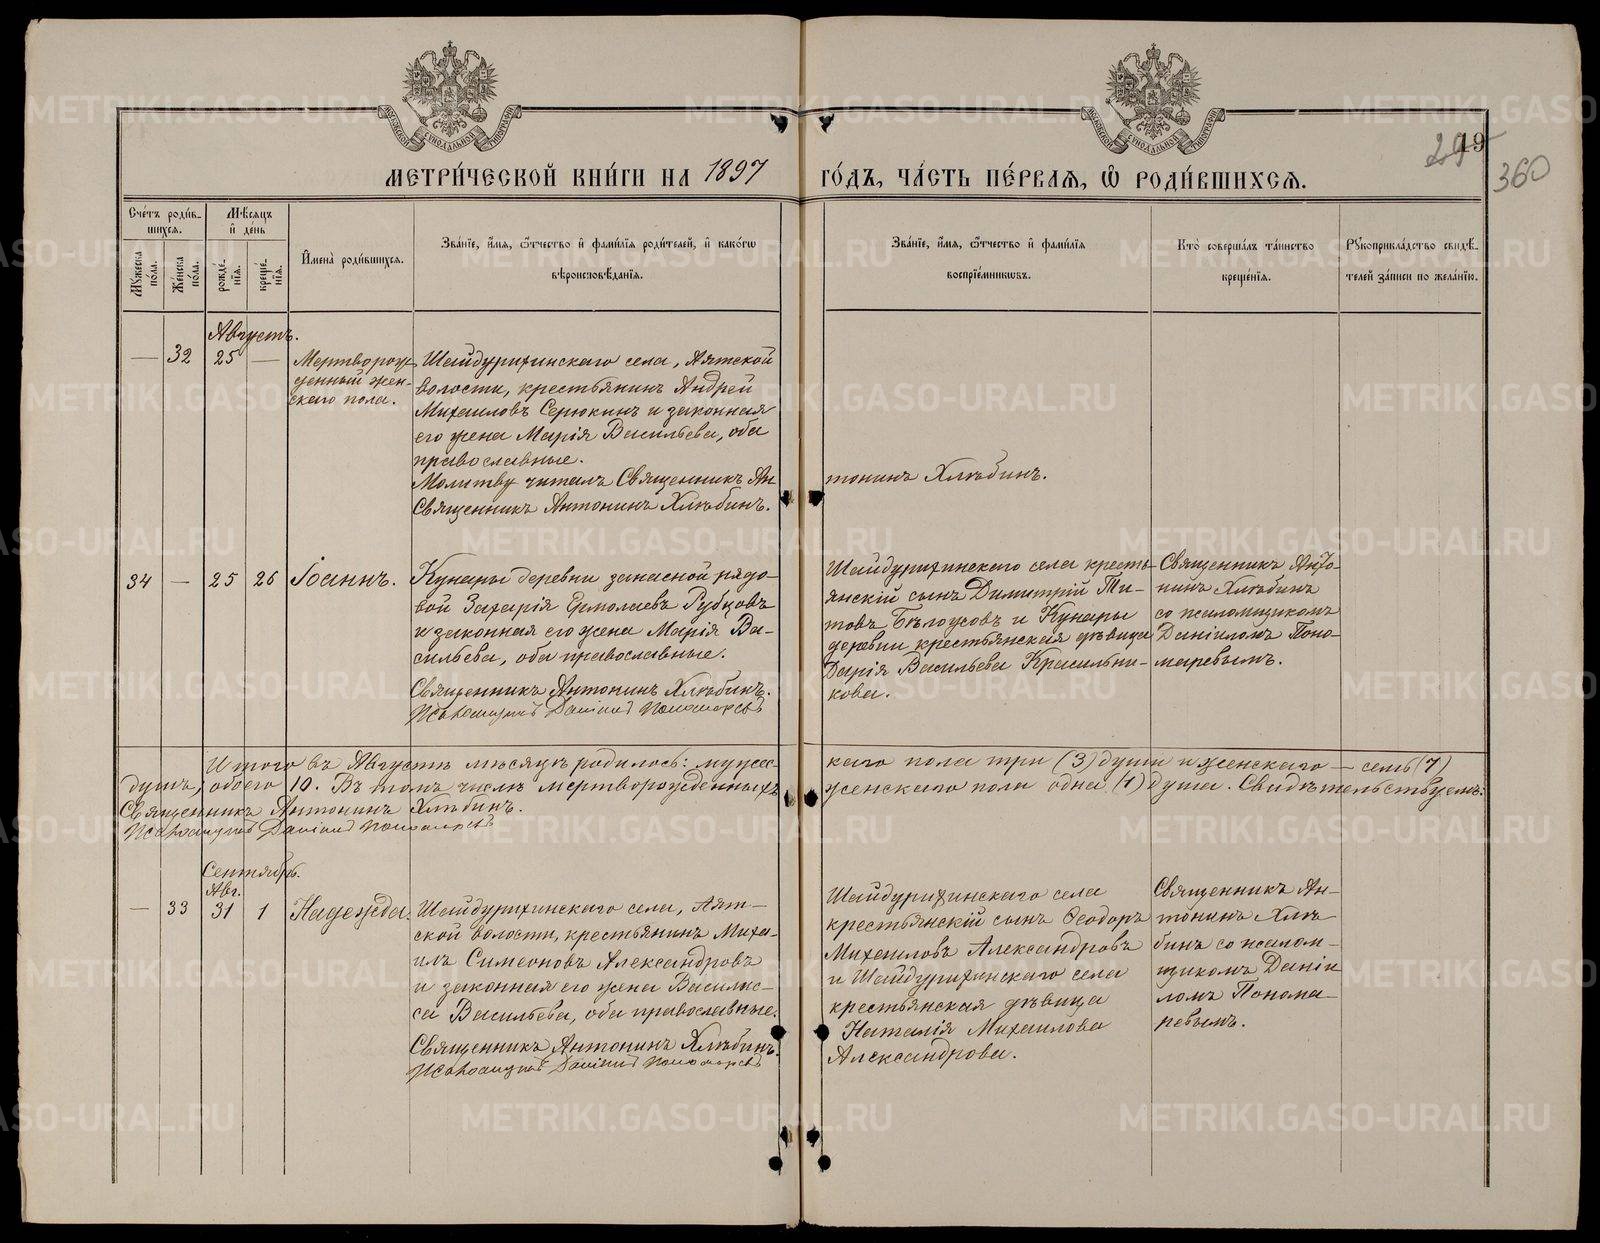 МОСКОВСКОЙ СѴНОДАЛЬНОЙ ТИПОГРАФІИ
МОСКОВСКОЙ СѴНОДАЛЬНОЙ ТИПОГРАФІИ
19
29
360
МЕТРИ́ЧЕСКОЙ КНИ́ГИ НА 1897 ГО́ДЪ, ЧА́СТЬ ПЕ́РВАѦ, Ѡ РОДИ́ВШИХСѦ.
Сче́тъ роди́в-
шихсѧ.
Мѣ́сѧцъ
и҆ де́нь
Мꙋ́жеска по́ла.
Же́нска по́ла.
рожде́-
нїѧ.
креще́-
нїѧ.
И҆мена̀ роди́вшихсѧ.
Зва́нїе, и҆́мѧ, ѻ҆́тчество и҆ фамѝлїѧ роди́телей, и҆ како́гѡ
вѣроисповѣ́данїѧ.
Зва́нїе, и҆́мѧ, ѻ҆́тчество и҆ фамѝлїѧ
воспрїе́мникѡвъ.
Кто̀ соверша́лъ та́инство
креще́нїѧ.
Рꙋкоприкла́дство свидѣ́-
телей за́писи по жела́нїю.
Августъ.
— 32 25 — Мертворож-
денный жен-
скаго пола.
Шайдурихинскаго села, Аятской
волости, крестьянинъ Андрей
Михаиловъ Серюкинъ и законная
его жена Марія Васильева, оба
православные.
Молитву читалъ Священникъ Ан
тонинъ Хлѣбинъ.
Священникъ Антонинъ Хлѣбинъ.
34 — 25 26 Іоаннъ.
Кунары деревни запасной рядо-
вой Захарія Ермолаевъ Рубцовъ
и законная его жена Марія Ва-
сильева, оба православные.
Священникъ Антонинъ Хлѣбинъ.
Псаломщикъ Даніилъ Пономаревъ
Шайдурихинскаго села кресть-
янскій сынъ Димитрій Ти-
товъ Бѣлоусовъ и Кунары
деревни крестьянская дѣвица
Дарія Васильева Красильни-
кова.
Священникъ Анто-
нинъ Хлѣбинъ
со псаломщикомъ
Даніиломъ Поно-
маревымъ.
Итого въ Августѣ мѣсяцѣ родилось: мужес-
каго пола три (3) души и женскаго — семь (7)
душъ, обоего 10. Въ томъ числѣ мертворожденныхъ
женскаго пола одна (1) душа. Свидѣтельствуемъ:
Священникъ Антонинъ Хлѣбинъ.
Псаломщикъ Даніилъ Пономаревъ
Сентябрь.
Авг.
— 33 31 1 Надежда.
Шайдурихинскаго села, Аят-
ской волости, крестьянинъ Миха-
илъ Симеоновъ Александровъ
и законная его жена Василис-
са Васильева, оба православные.
Священникъ Антонинъ Хлѣбинъ.
Псаломщикъ Даніилъ Пономаревъ
Шайдурихинскаго села
крестьянскій сынъ Ѳеодоръ
Михаиловъ Александровъ
и Шайдурихинскаго села
крестьянская дѣвица
Наталія Михаилова
Александрова.
Священникъ Ан-
тонинъ Хлѣ-
бинъ со псалом-
щикомъ Даніи
ломъ Понома-
ревымъ.
METRIKI.GASO-URAL.RU